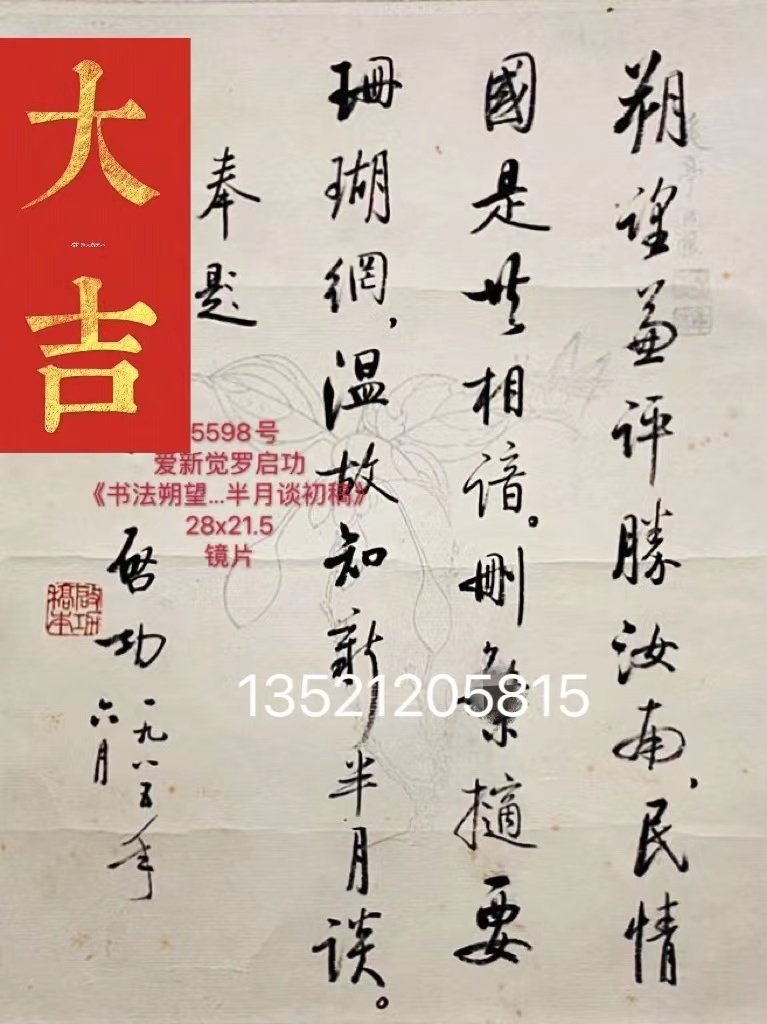 朔望兼评勝汝南，民情
國是共相谙。刪繁擿要
珊瑚網，温故知新半月谈。
奉题
啓功
一九八五年
六月
大吉
5598号
爱新觉罗启功
《书法朔望...半月谈初稿》
28x21.5
镜片
13521205815